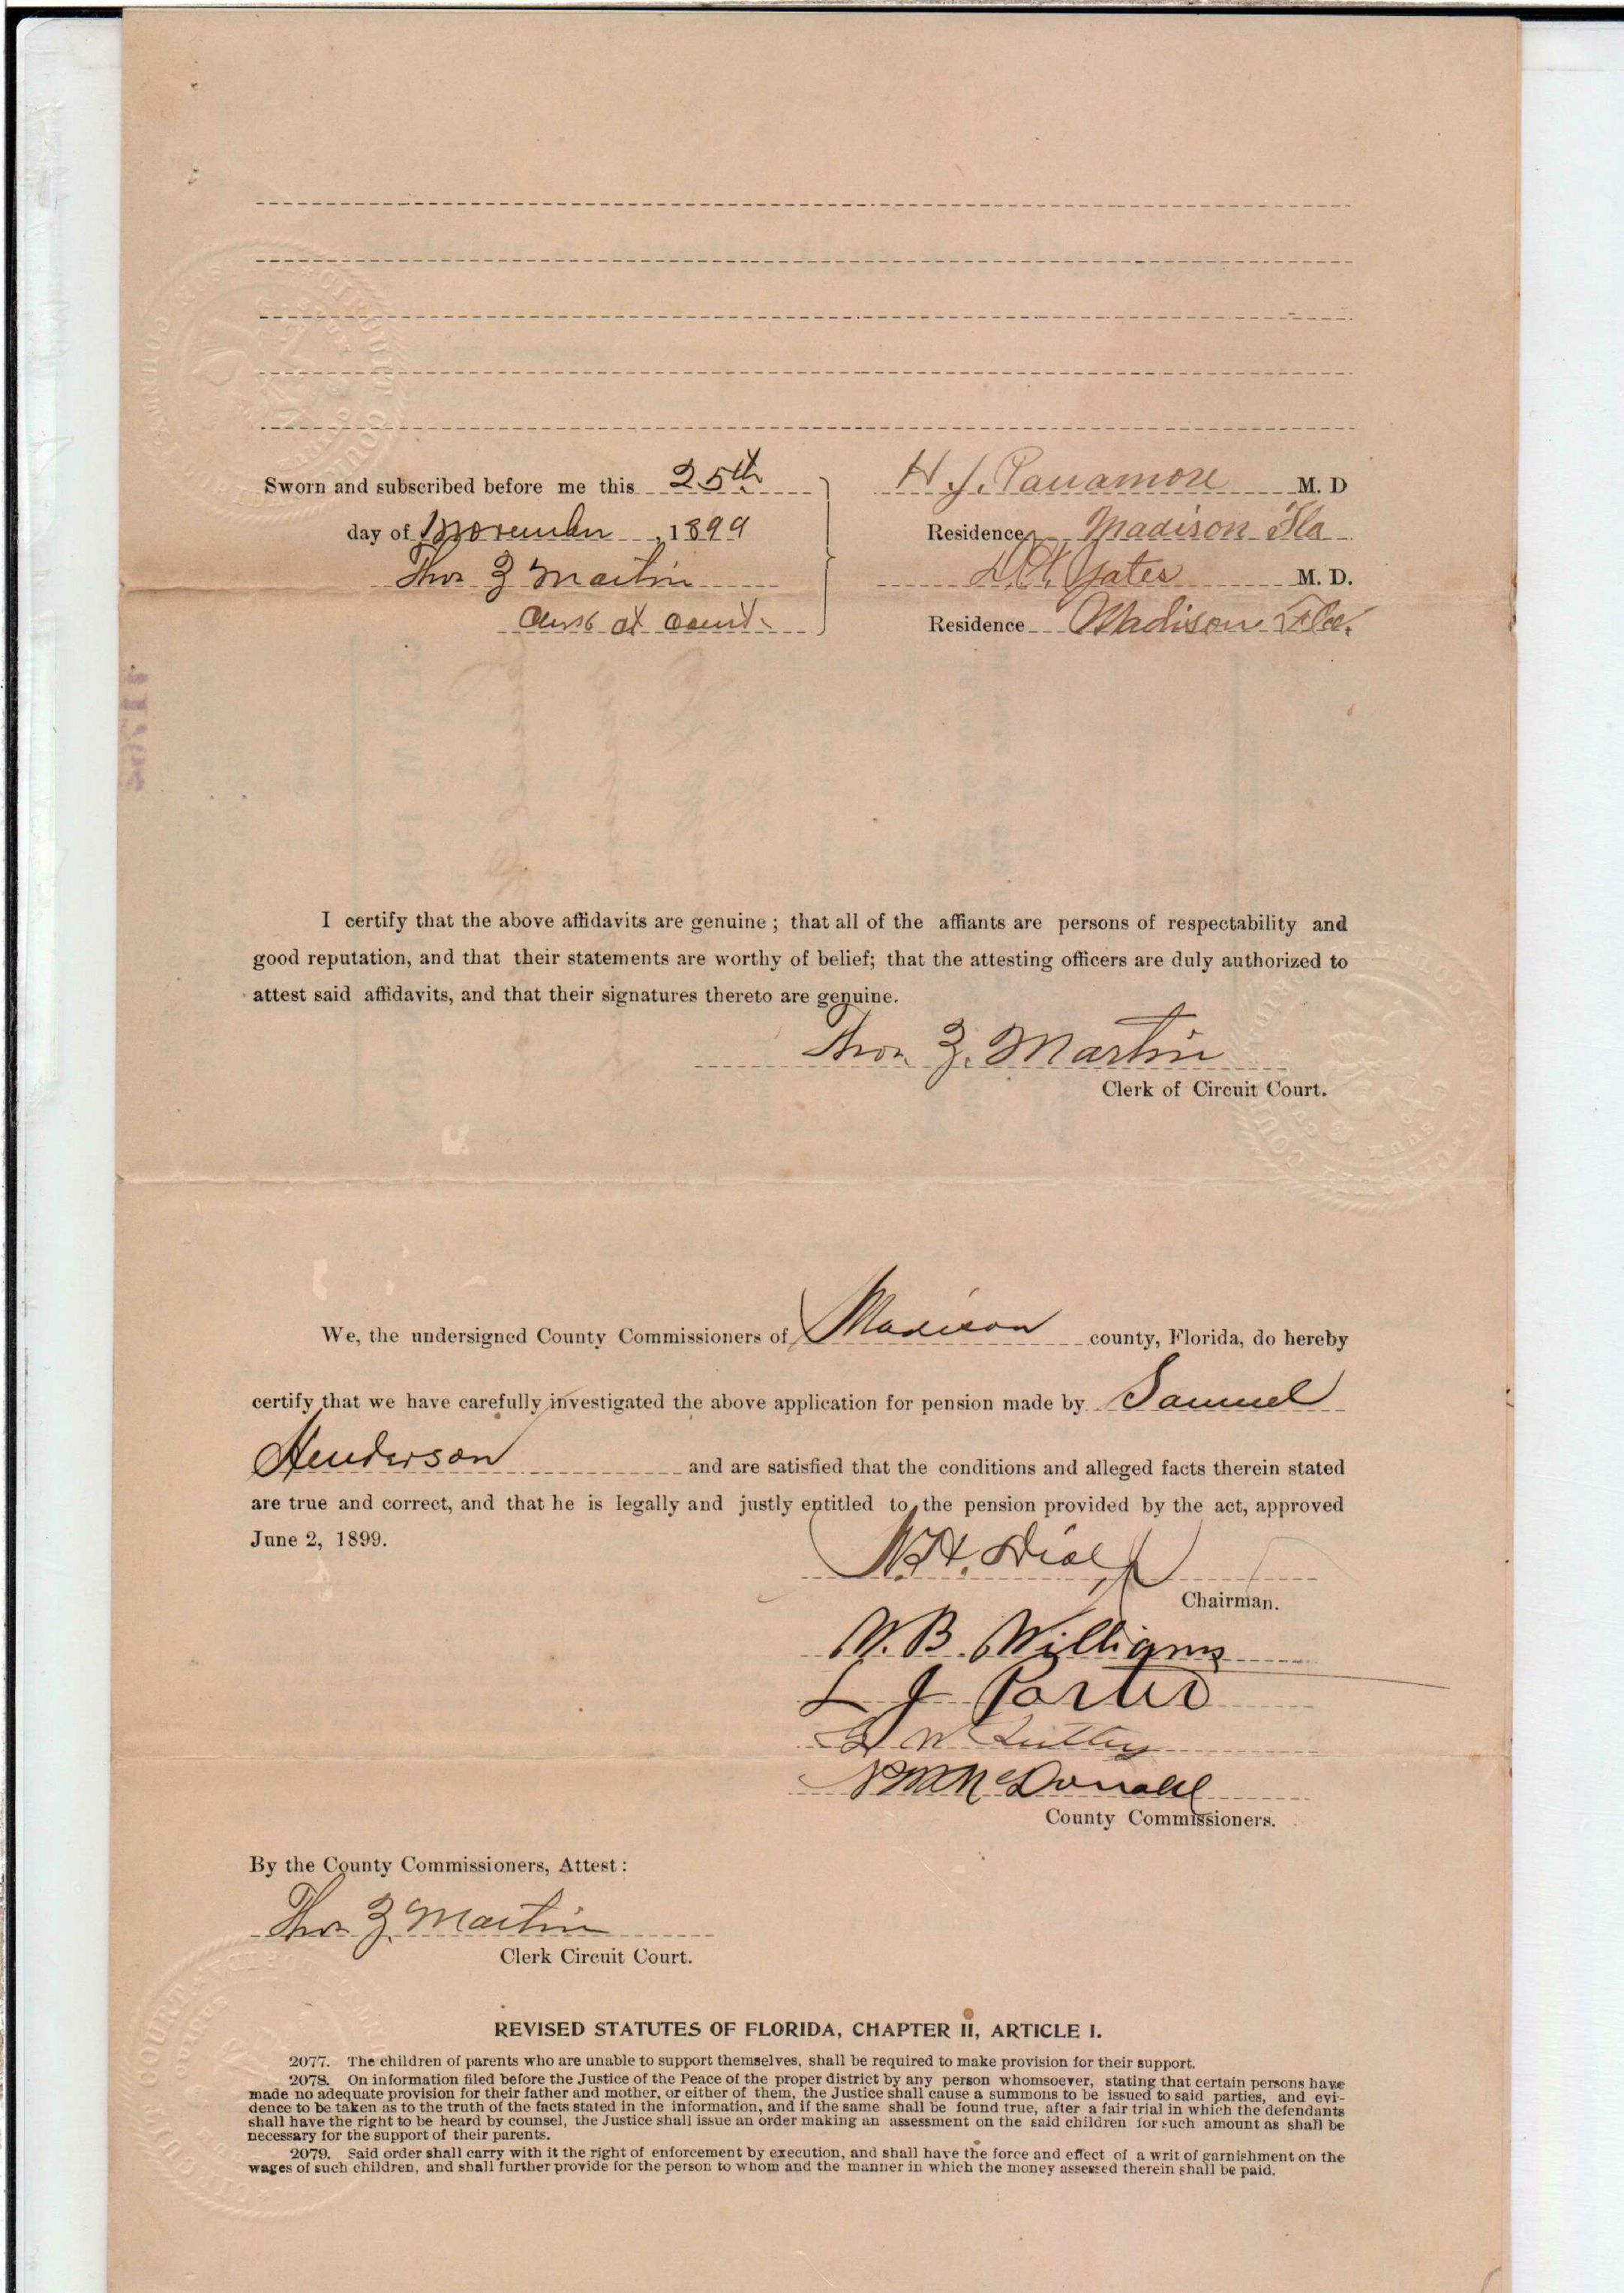 Sworn and subscribed before me this 25th
day of November, 1899
Thos Z Martin
Clerk of Court
H J. M. D
Residence Madison Fla
Yates M. D.
Residence Madison Fla.
I certify that the above affidavits are genuine; that all of the affiants are persons of respectability and
good reputation, and that their statements are worthy of belief; that the attesting officers are duly authorized to
attest said affidavits, and that their signatures thereto are genuine.
Thos Z. Martin
Clerk of Circuit Court.
We, the undersigned County Commissioners of Madison county, Florida, do hereby
certify that we have carefully investigated the above application for pension made by Samuel
Henderson and are satisfied that the conditions and alleged facts therein stated
are true and correct, and that he is legally and justly entitled to the pension provided by the act, approved
June 2, 1899.
Dial
Chairman.
W. B. Williams
L J Porter
McDonald
County Commissioners.
By the County Commissioners, Attest:
Thos Z. Martin
Clerk Circuit Court.
REVISED STATUTES OF FLORIDA, CHAPTER II, ARTICLE I.
2077. The children of parents who are unable to support themselves, shall be required to make provision for their support.
2078. On information filed before the Justice of the Peace of the proper district by any person whomsoever, stating that certain persons have
made no adequate provision for their father and mother, or either of them, the Justice shall cause a summons to be issued to said parties, and evi-
dence to be taken as to the truth of the facts stated in the information, and if the same shall be found true, after a fair trial in which the defendants
shall have the right to be heard by counsel, the Justice shall issue an order making an assessment on the said children for such amount as shall be
necessary for the support of their parents.
2079. Said order shall carry with it the right of enforcement by execution, and shall have the force and effect of a writ of garnishment on the
wages of such children, and shall further provide for the person to whom and the manner in which the money assessed therein shall be paid.